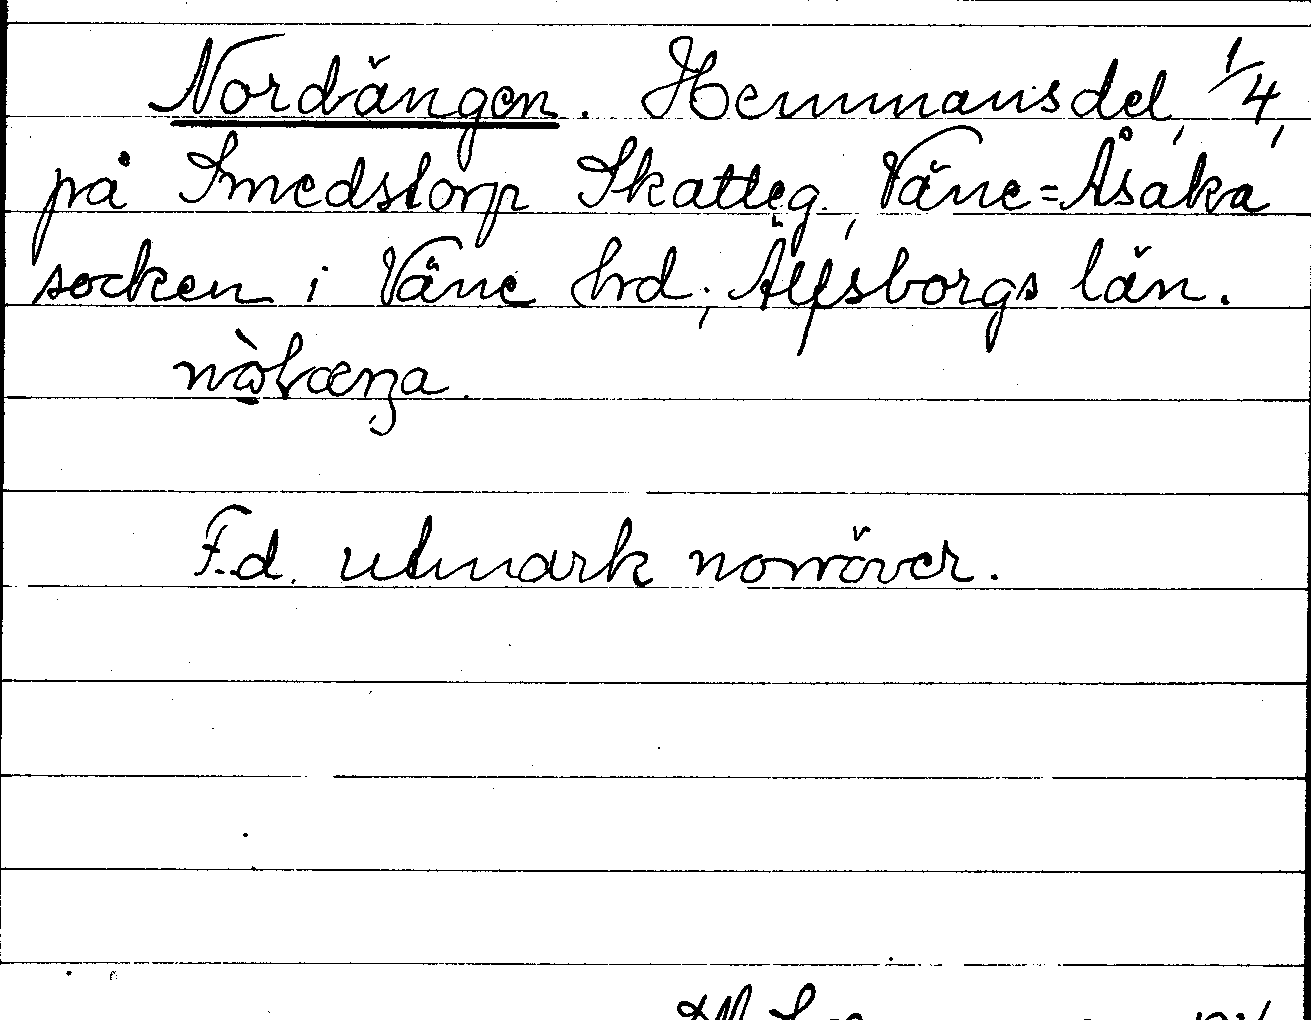 Nordängen. Hemmansdel, 1/4,
på Smedstorp Skatteg., Väne=Åsaka
socken i Väne hrd; Älfsborgs län.
F.d. utmark norröver.